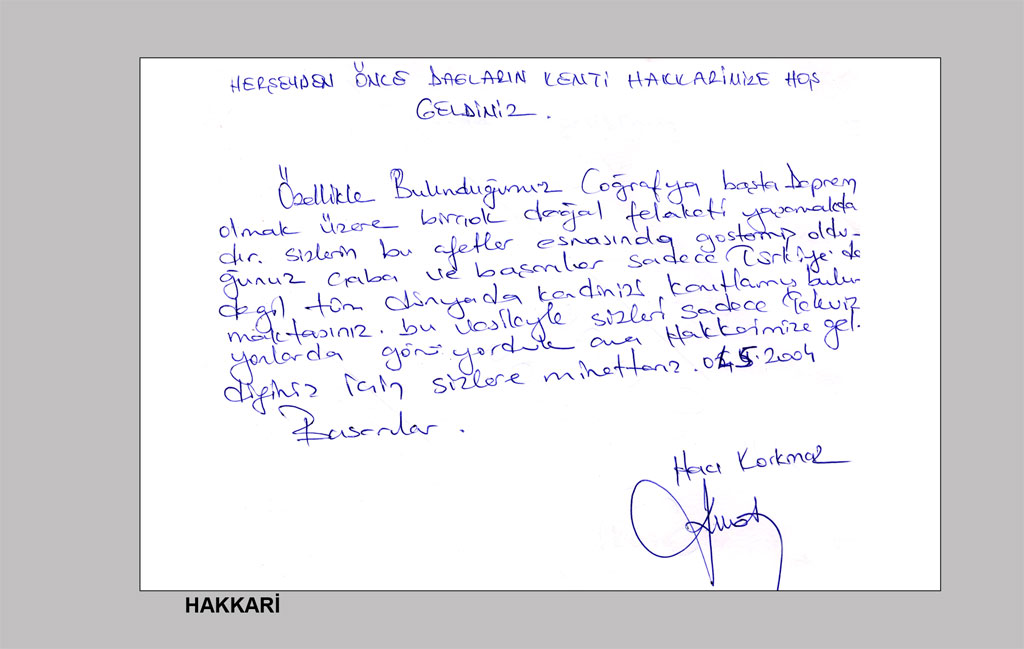 HERŞEYDEN ÖNCE DAĞLARIN KENTİ HAKKARİMİZE HOŞ
GELDİNİZ.
Özellikle Bulunduğumuz Coğrafya başta Deprem
olmak üzere birçok doğal felaketi yaşamakta
dır. sizlerin bu afetler esnasında göstermiş oldu-
ğunuz çaba ve başarılar sadece Türkiye'de
değil tüm dünyada kendinizi kanıtlamış bulun
maktasınız. bu vesileyle sizleri sadece Televiz
yonlarda görüyorduk ama Hakkarimize gel.
diğiniz için sizlere minettarız. 2004
Başarılar.
Hacı Korkmaz
HAKKARİ